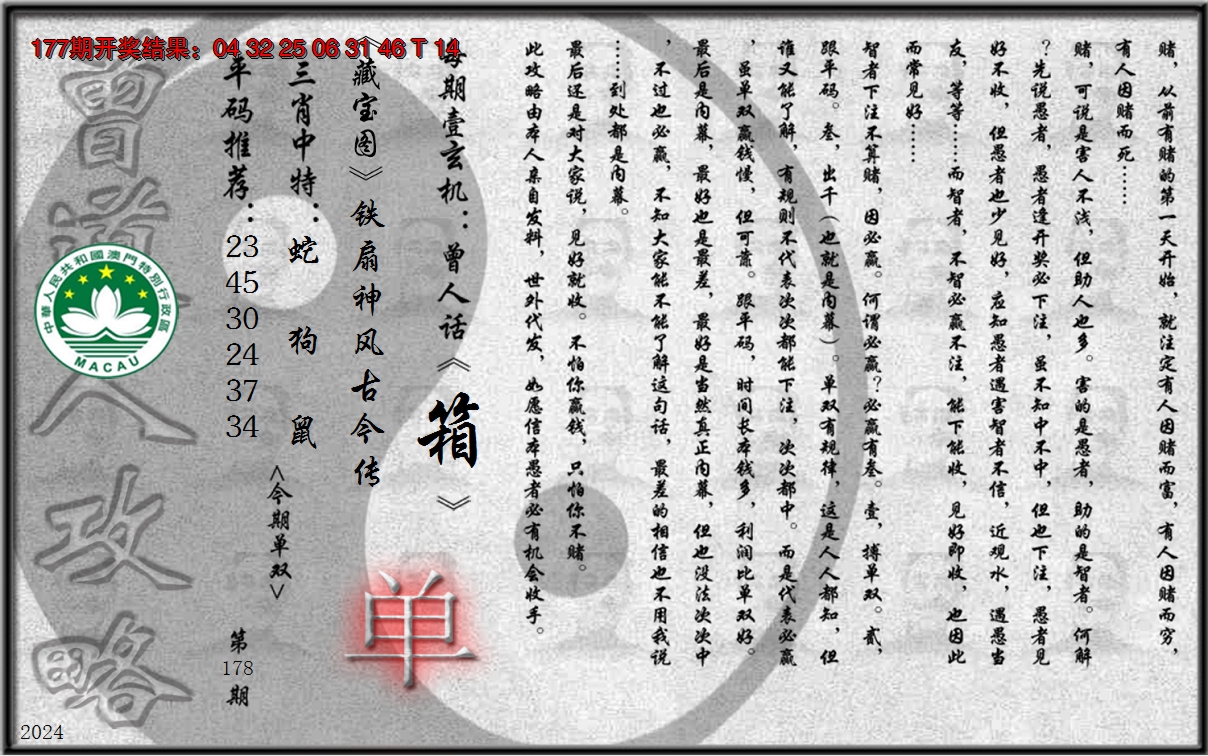 177期开奖结果：04 32 25 06 31 46 T 14
赌，从前有赌的第一天开始，就注定有人因赌而富，有人因赌而穷，
有人因赌而死……
赌，可说是害人不浅，但助人也多。害的是愚者，助的是智者。何解
？先说愚者，愚者逢开奖必下注，虽不知中不中，但也下注，愚者见
好不收，但愚者也少见好，应知愚者遇害智者不信，近观水，遇愚当
友，等等……而智者，不智必赢不注，能下能收，见好即收，也因此
而常见好……
智者下注不算赌，因必赢。何谓必赢？必赢有叁。壹，搏单双。贰，
跟平码。叁，出千（也就是内幕）。单双有规律，这是人人都知，但
谁又能了解，有规则不代表次次都能下注，次次都中。而是代表必赢
，虽单双赢钱慢，但可靠。跟平码，时间长本钱多，利润比单双好。
最后是内幕，最好也是最差，最好是当然真正内幕，但也没法次次中
，不过也必赢，不知大家能不能了解这句话，最差的相信也不用我说
……到处都是内幕。
最后还是对大家说，见好就收。不怕你赢钱，只怕你不赌。
此攻略由本人亲自发料，世外代发，如愿信本愚者必有机会收手。
每期壹玄机：曾人话《箱》
《藏宝图》铁扇神风古今传
单
三肖中特：蛇 狗 鼠
<今期单双>
平码推荐：23 45 30 24 37 34
第178期
曾道人攻略
中華人民共和國澳門特別行政區
MACAU
2024